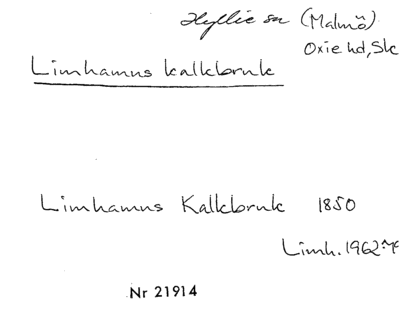 Hyllie sn (Malmö)
Oxie hd, Sk
Limhamns kalkbruk
Limhamns Kalkbruk 1850
Limh. 1962
Nr 21914